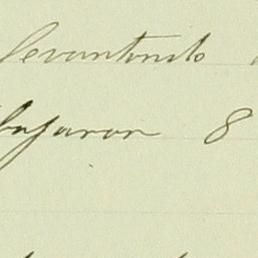 levantando
bajaron 8